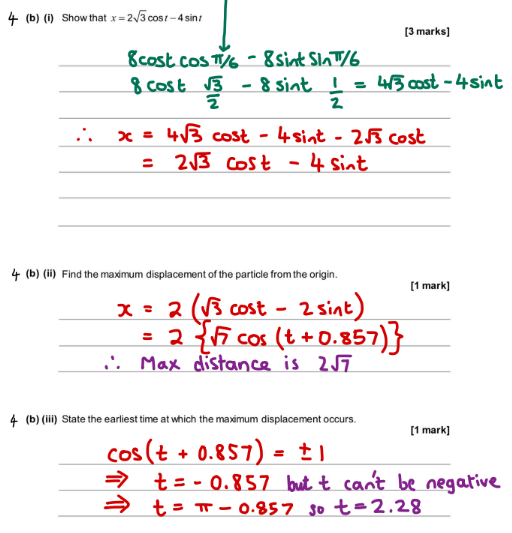 4 (b) (i) Show that x = 2√3 cos t – 4 sin t
[3 marks]
8cost cos π/6 - 8sint sin π/6
8 cost √3/2 - 8 sint 1/2 = 4√3 cost - 4sint
∴ x = 4√3 cost - 4sint - 2√3 cost
= 2√3 cost - 4 sint
4 (b) (ii) Find the maximum displacement of the particle from the origin.
[1 mark]
x = 2 (√3 cost - 2 sint)
= 2 {√7 cos (t + 0.857)}
∴ Max distance is 2√7
4 (b) (iii) State the earliest time at which the maximum displacement occurs.
[1 mark]
cos(t + 0.857) = ±1
⇒ t = - 0.857 but t can't be negative
⇒ t = π - 0.857 so t = 2.28